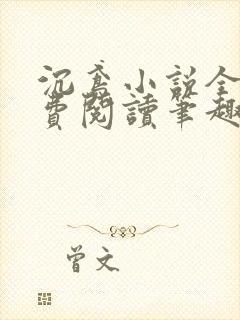 沉鸢小说全
费阅读笔趣
曾文